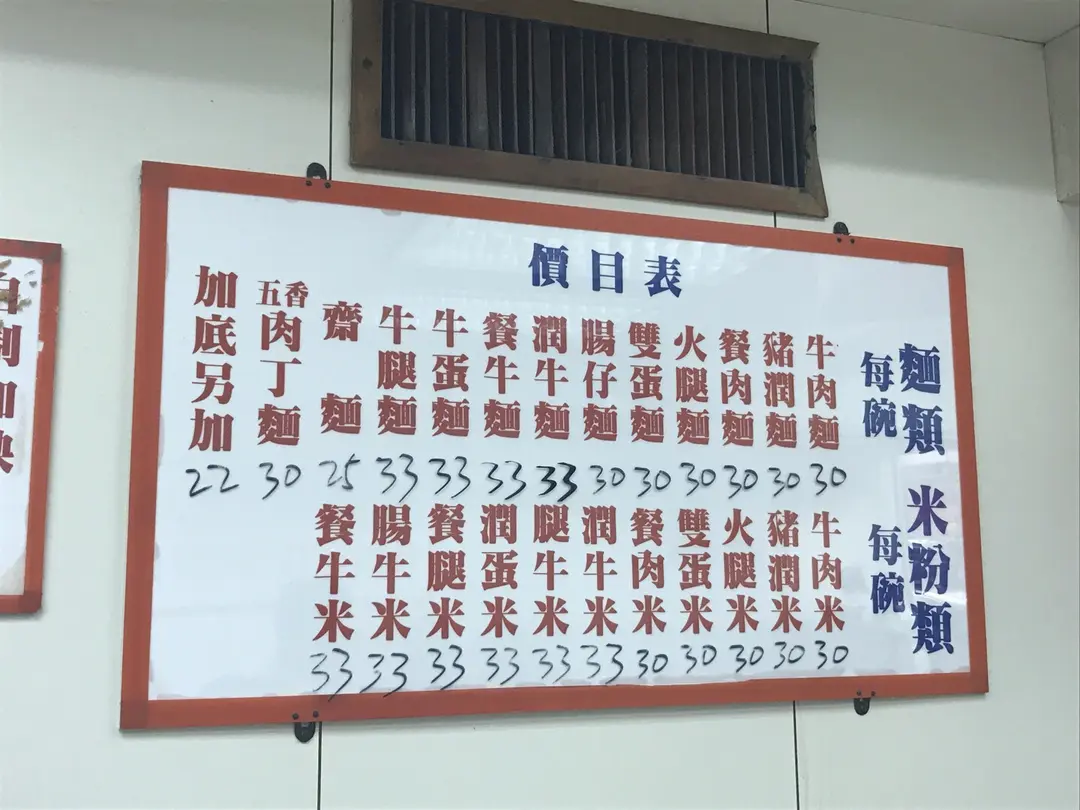 價目表
麵類
每碗
牛肉麵 30
豬潤麵 30
餐肉麵 30
火腿麵 30
雙蛋麵 30
腸仔麵 30
潤牛麵 33
餐牛麵 33
牛蛋麵 33
牛腿麵 33
齋麵 25
五香肉丁麵 30
加底另加 22
米粉類
每碗
牛肉米 30
豬潤米 30
火腿米 30
雙蛋米 30
餐肉米 30
潤牛米 33
腿牛米 33
潤蛋米 33
餐腿米 33
腸牛米 33
餐牛米 33